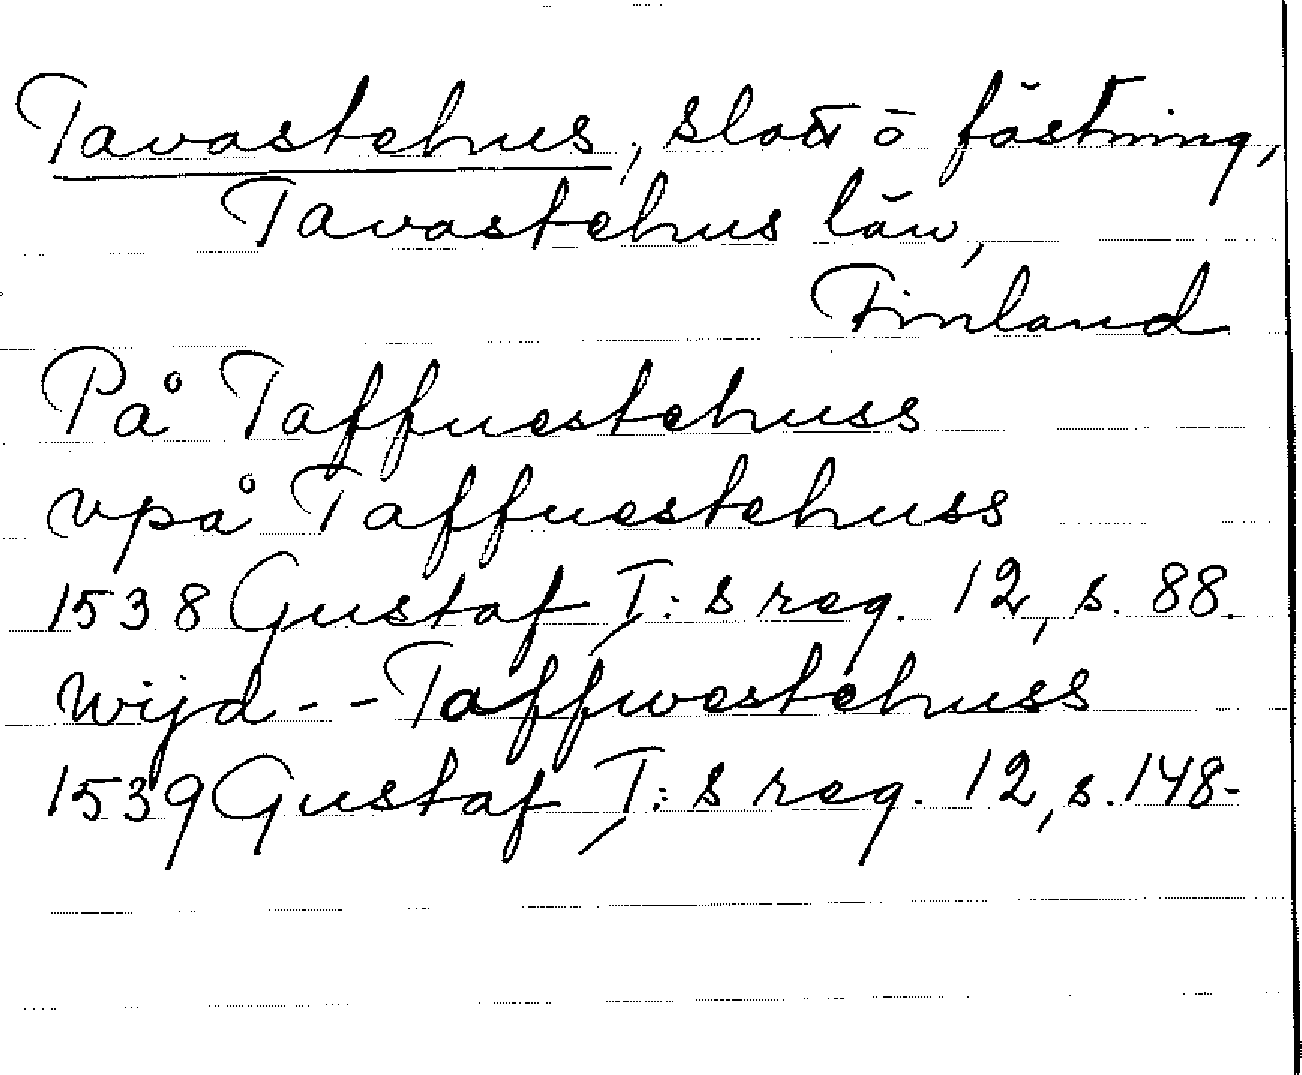 Tavastehus, slott o fästning,
Tavastehus län,
Finland
På Taffuestehuss
vpå Taffuestehuss
1538 Gustaf I:s reg. 12, s. 88.
wijd -- Taffwestehuss
1539 Gustaf I:s reg. 12, s. 148.